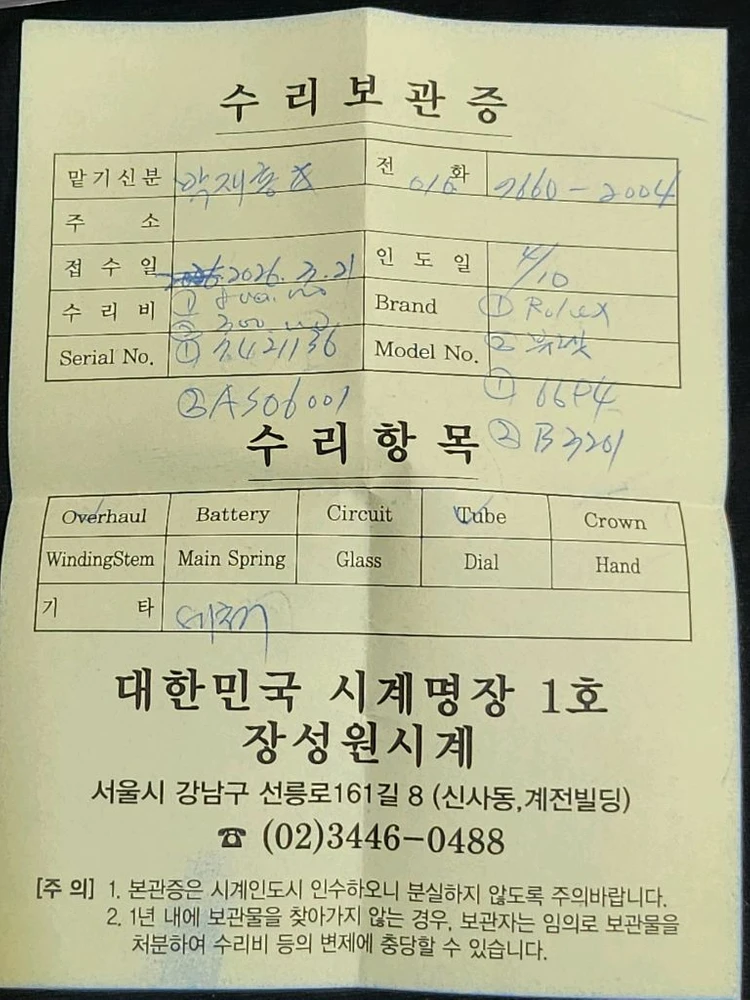 수리보관증
맡기신분 박재홍 전화 016 9660-2004
주소
접수일 2026. 3. 21 인도일 4/10
수리비 ① ② 300. Brand ① Rolex
Serial No. ① 7421136 Model No. ②
② AS06001 ① 6694
수리항목 ② B3201
Overhaul Battery Circuit Tube Crown
WindingStem Main Spring Glass Dial Hand
기타 세척
대한민국 시계명장 1호
장성원시계
서울시 강남구 선릉로161길 8 (신사동,계전빌딩)
☎ (02)3446-0488
[주 의] 1. 본관증은 시계인도시 인수하오니 분실하지 않도록 주의바랍니다.
2. 1년 내에 보관물을 찾아가지 않는 경우, 보관자는 임의로 보관물을
처분하여 수리비 등의 변제에 충당할 수 있습니다.